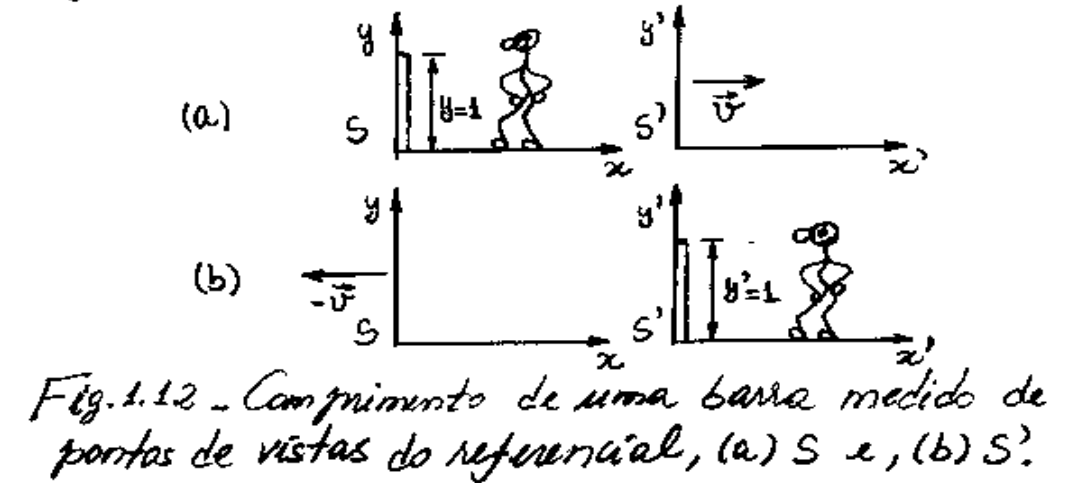 y
y'
(a)
S
y=1
S'
v⃗
x
x'
y
y'
(b)
-v⃗
S
S'
y'=1
x
x'
Fig. 1.12 - Comprimento de uma barra medido de
pontos de vistas do referencial, (a) S e, (b) S'.